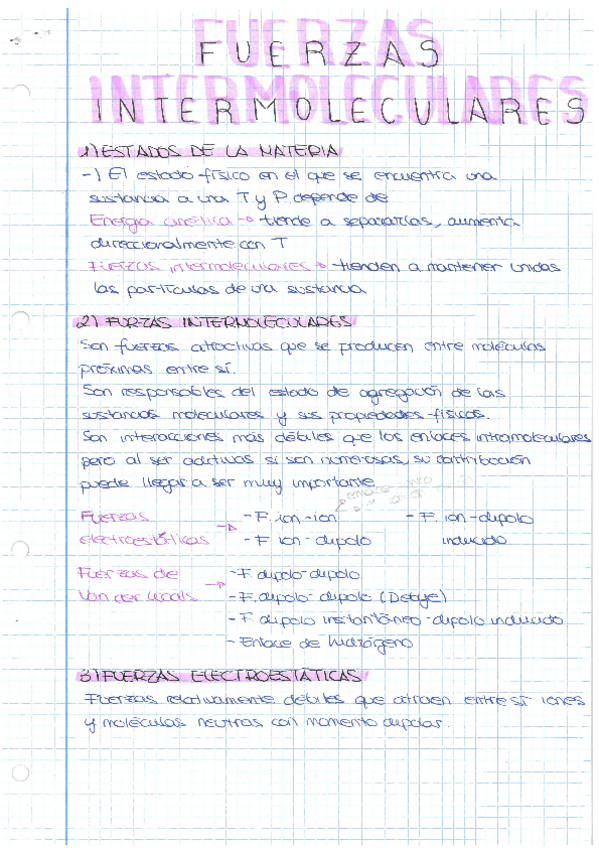 FUERZAS
INTERMOLECULARES
1) ESTADOS DE LA MATERIA
-) El estado físico en el que se encuentra una
sustancia a una T y P. depende de
Energía cinética → tiende a separarlas, aumenta
direccionalmente con T
Fuerzas intermoleculares → tienden a mantener unidas
las partículas de una sustancia
2) FUERZAS INTERMOLECULARES
Son fuerzas atractivas que se producen entre moléculas
próximas entre sí.
Son responsables del estado de agregación de las
sustancias moleculares y sus propiedades físicas.
Son interacciones más débiles que los enlaces intramoleculares
pero al ser aditivas si son numerosas, su contribución
puede llegar a ser muy importante
Fuerzas → - F. ion-ion - F. ion-dipolo
electroestáticas - F ion-dipolo inducido
Fuerzas de → - F. dipolo-dipolo
Van der Waals - F. dipolo-dipolo (Debye)
- F dipolo instantáneo-dipolo inducido
- Enlace de hidrógeno
3) FUERZAS ELECTROESTÁTICAS
Fuerzas relativamente débiles que atraen entre sí iones
y moléculas neutras con momento dipolar.